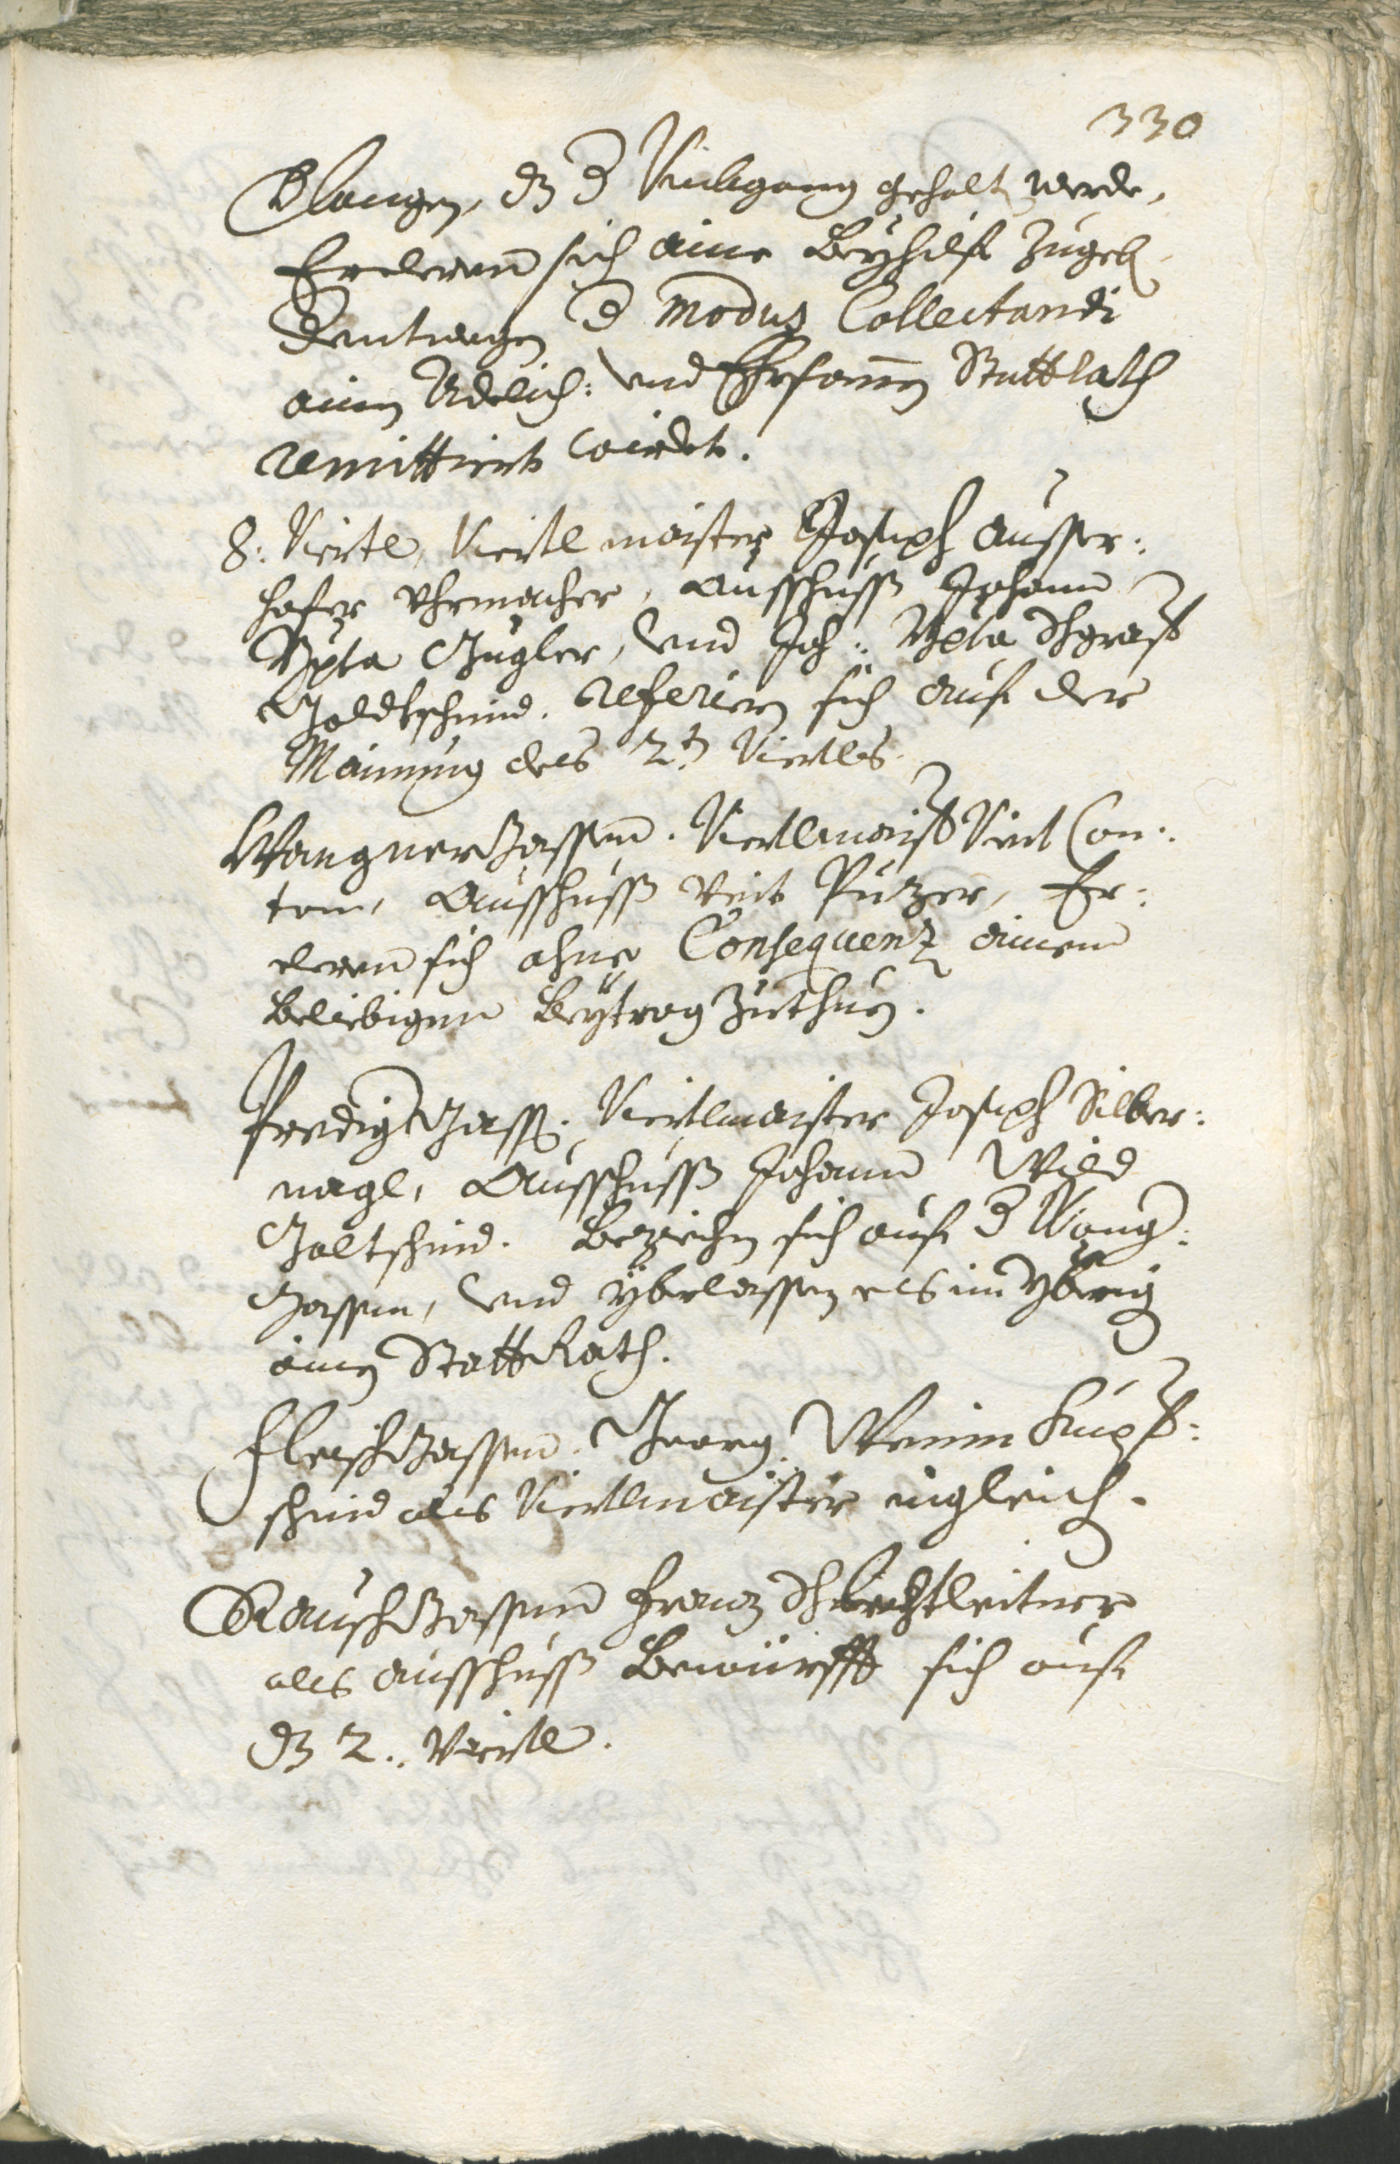 330
Blangen, dz d Umbgang gehalt werde,
Erclern sich aine Beyhilf zugeb,
dentwegen d Modus Collectandi
ainen Adelich: und Ehrsamen Stattrath
remittiert wirdet.
8: Viertl, Viertlmaister Joseph Ausser:
hofer Uhrmacher, Ausschuss Johann
Bpta Gugler, und Joh: Bpta
Goldtschmid. referiern sich auf der
Mainung des 2tn Viertls.
Wangnergassen. Viertlmaister Veit Con:
tom, Ausschuss Veit Putzer, Er:
clern sich ohne Consequenz ainen
beliebigen Beytrag zuthuen.
Predig Gass: Viertlmaister Joseph Silber:
nagl, Ausschuss Johann Wild
Goltschmid. Beziechen sich auf d Wang:
Gassen, und yberlassen es im ybrig
ainen Statt Rath.
Fleischgassen. Georg Kupfer:
schmid als Viertlmaister ingleich.
Rauschgassen Franz
als Ausschuss Berüefft sich auf
dz 2.. Viertl.